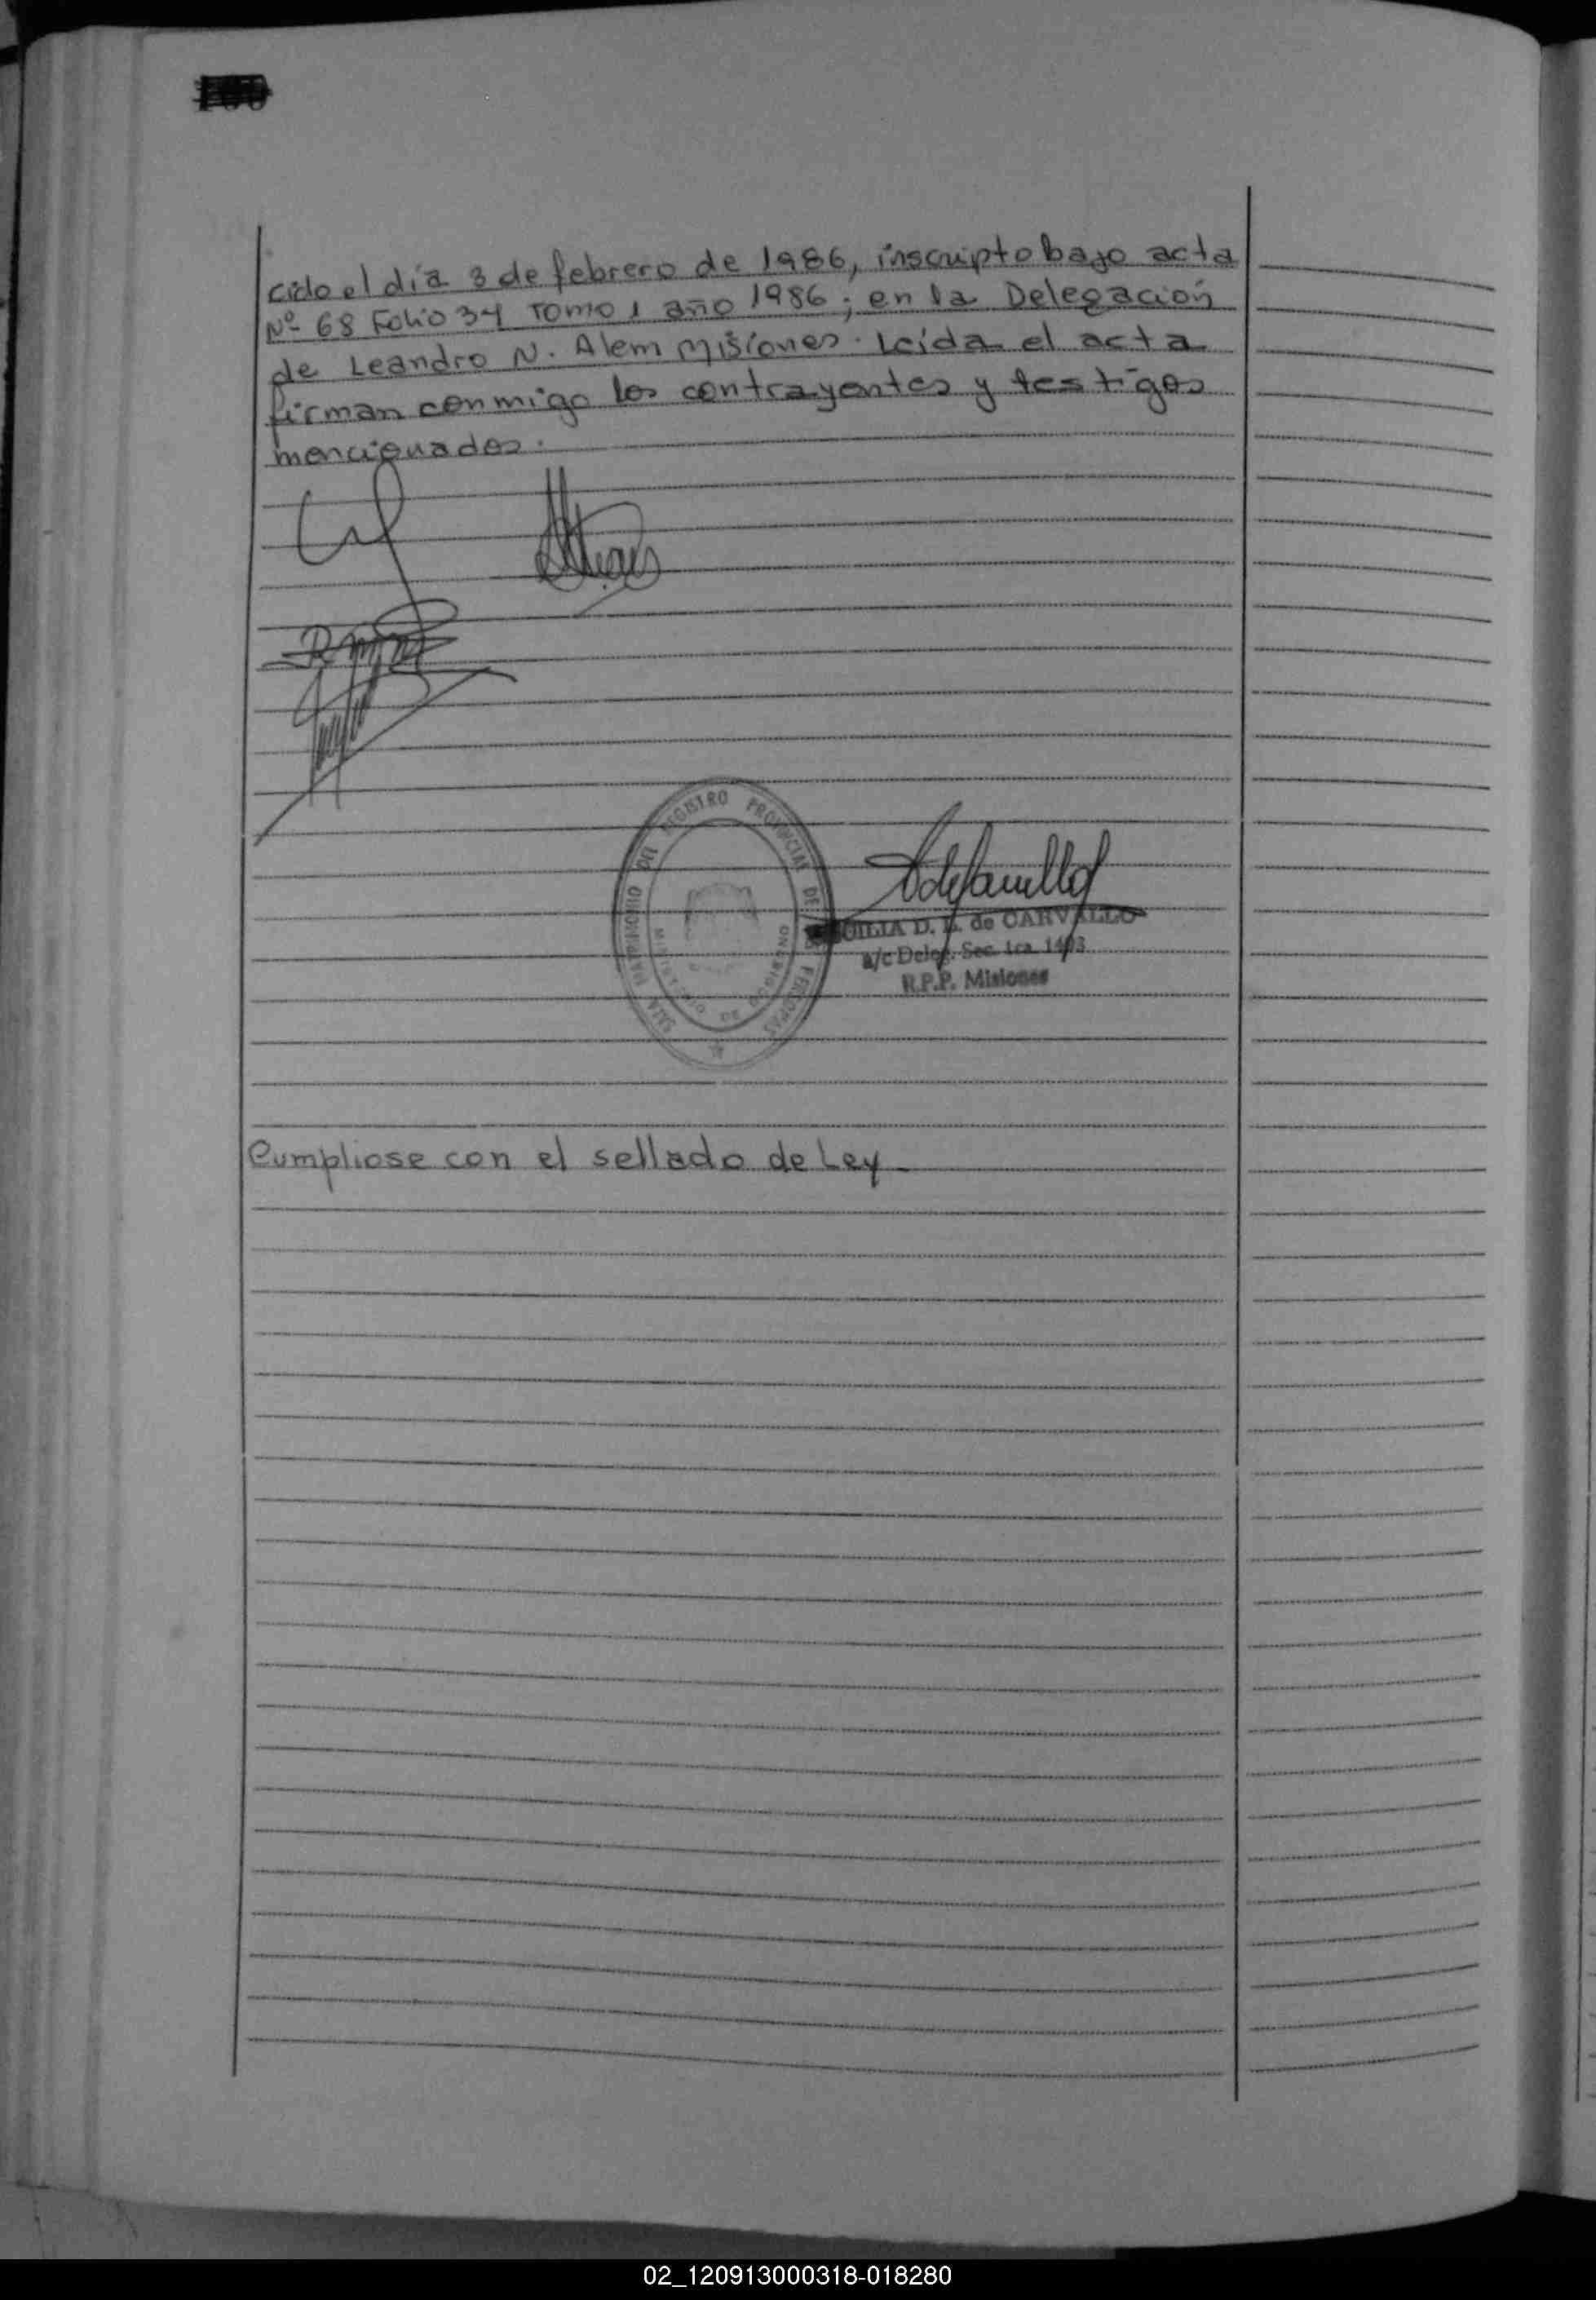 cido el día 3 de febrero de 1986, inscripto bajo acta
Nº 68 Folio 34 Tomo 1 año 1986; en la Delegación
de Leandro N. Alem Misiones. Leída el acta
firman conmigo los contrayentes y testigos
mencionados.
SALA MATRIMONIO DEL REGISTRO PROVINCIAL DE LAS PERSONAS
MINISTERIO DE GOBIERNO
D. de CARVALLO
a/c Deleg. Sec. 1ra. 1403
R.P.P. Misiones
Cumpliose con el sellado de Ley
02_120913000318-018280